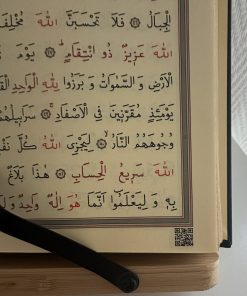 الْجِبَالُ ۞ فَلَا تَحْسَبَنَّ اللهَ مُخْلِفَ
اللهَ عَزِيزٌ ذُو انْتِقَامٍ ۞ يَوْمَ
الْاَرْضِ وَ السَّمٰوَاتُ وَ بَرَزُوا لِلّٰهِ الْوَاحِدِ
يَوْمَئِذٍ مُقَرَّنِينَ فِي الْاَصْفَادِ ۞ سَرَابِيلُهُمْ
وُجُوهَهُمُ النَّارُ ۞ لِيَجْزِيَ اللهُ كُلَّ
اللهَ سَرِيعُ الْحِسَابِ ۞ هٰذَا بَلَاغٌ
بِهٖ وَ لِيَعْلَمُوا اَنَّمَا هُوَ اِلٰهٌ وَاحِدٌ